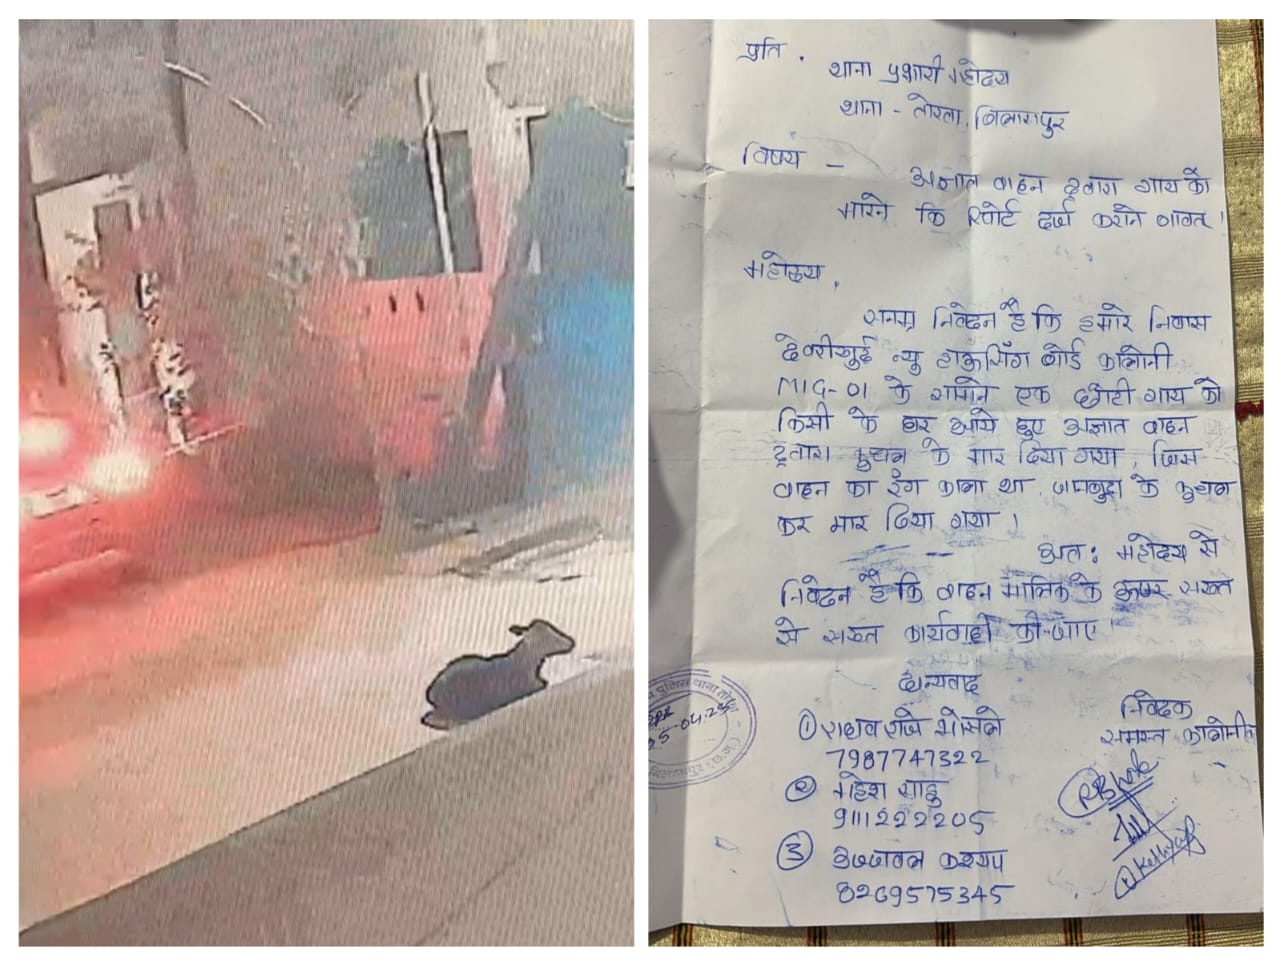 प्रति,
थाना प्रभारी महोदय
थाना - तोरवा, बिलासपुर
विषय -
अज्ञात वाहन द्वारा गाय को
मारने कि रिपोर्ट दर्ज कराने बावत।
महोदय,
सनम्र निवेदन है कि हमारे निवास
देवरीखुर्द न्यु हाऊसिंग बोर्ड कालोनी
MIG-01 के सामने एक छोटी गाय को
किसी के घर आये हुए अज्ञात वाहन
द्वारा कुचल के मार दिया गया, जिस
वाहन का रंग काला था, जानबुझ के कुचल
कर मार दिया गया।
अत: महोदय से
निवेदन है कि वाहन मालिक के ऊपर सख्त
से सख्त कार्यवाही की जाए।
धन्यवाद
निवेदक
समस्त कालोनी
① राघव राजे भोसले
7987747322
② महेश साहू
9111222205
③ उज्जवल कश्यप
8269575345
पुलिस थाना
बिलासपुर (छ.ग.)